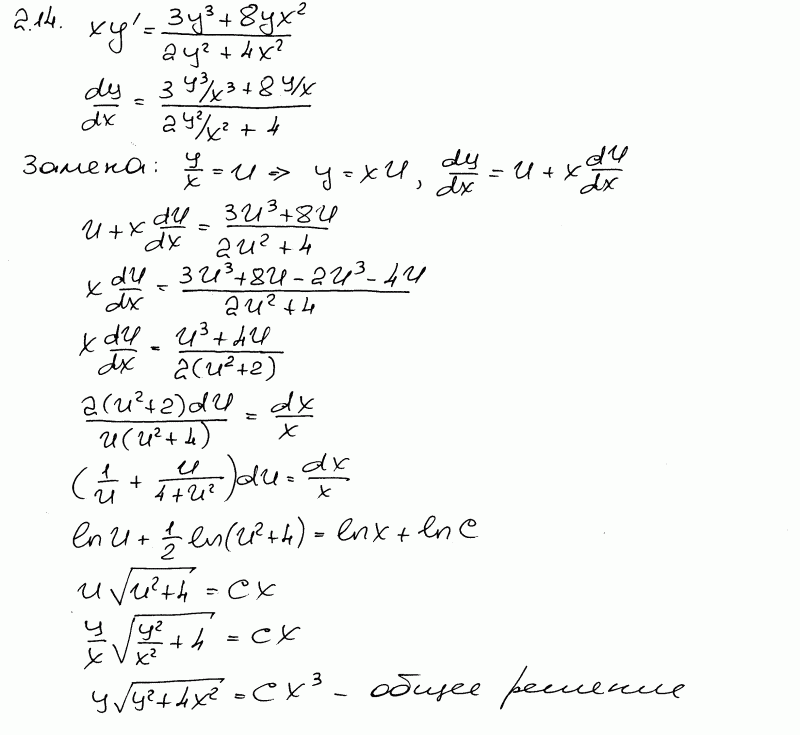 2.14. xy' = (3y³ + 8yx²)/(2y² + 4x²)
dy/dx = (3 y³/x³ + 8 y/x)/(2 y²/x² + 4)
Замена: y/x = u ⇒ y = xu, dy/dx = u + x du/dx
u + x du/dx = (3u³ + 8u)/(2u² + 4)
x du/dx = (3u³ + 8u − 2u³ − 4u)/(2u² + 4)
x du/dx = (u³ + 4u)/(2(u² + 2))
2(u² + 2)du/(u(u² + 4)) = dx/x
(1/u + u/(4 + u²))du = dx/x
ln u + 1/2 ln(u² + 4) = ln x + ln C
u√(u² + 4) = Cx
y/x √(y²/x² + 4) = Cx
y√(y² + 4x²) = Cx³ – общее решение